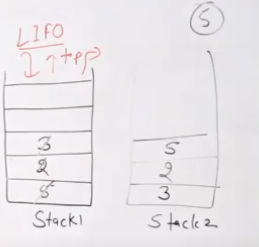 5
LIFO
top
3
2
5
Stack1
5
2
3
Stack2